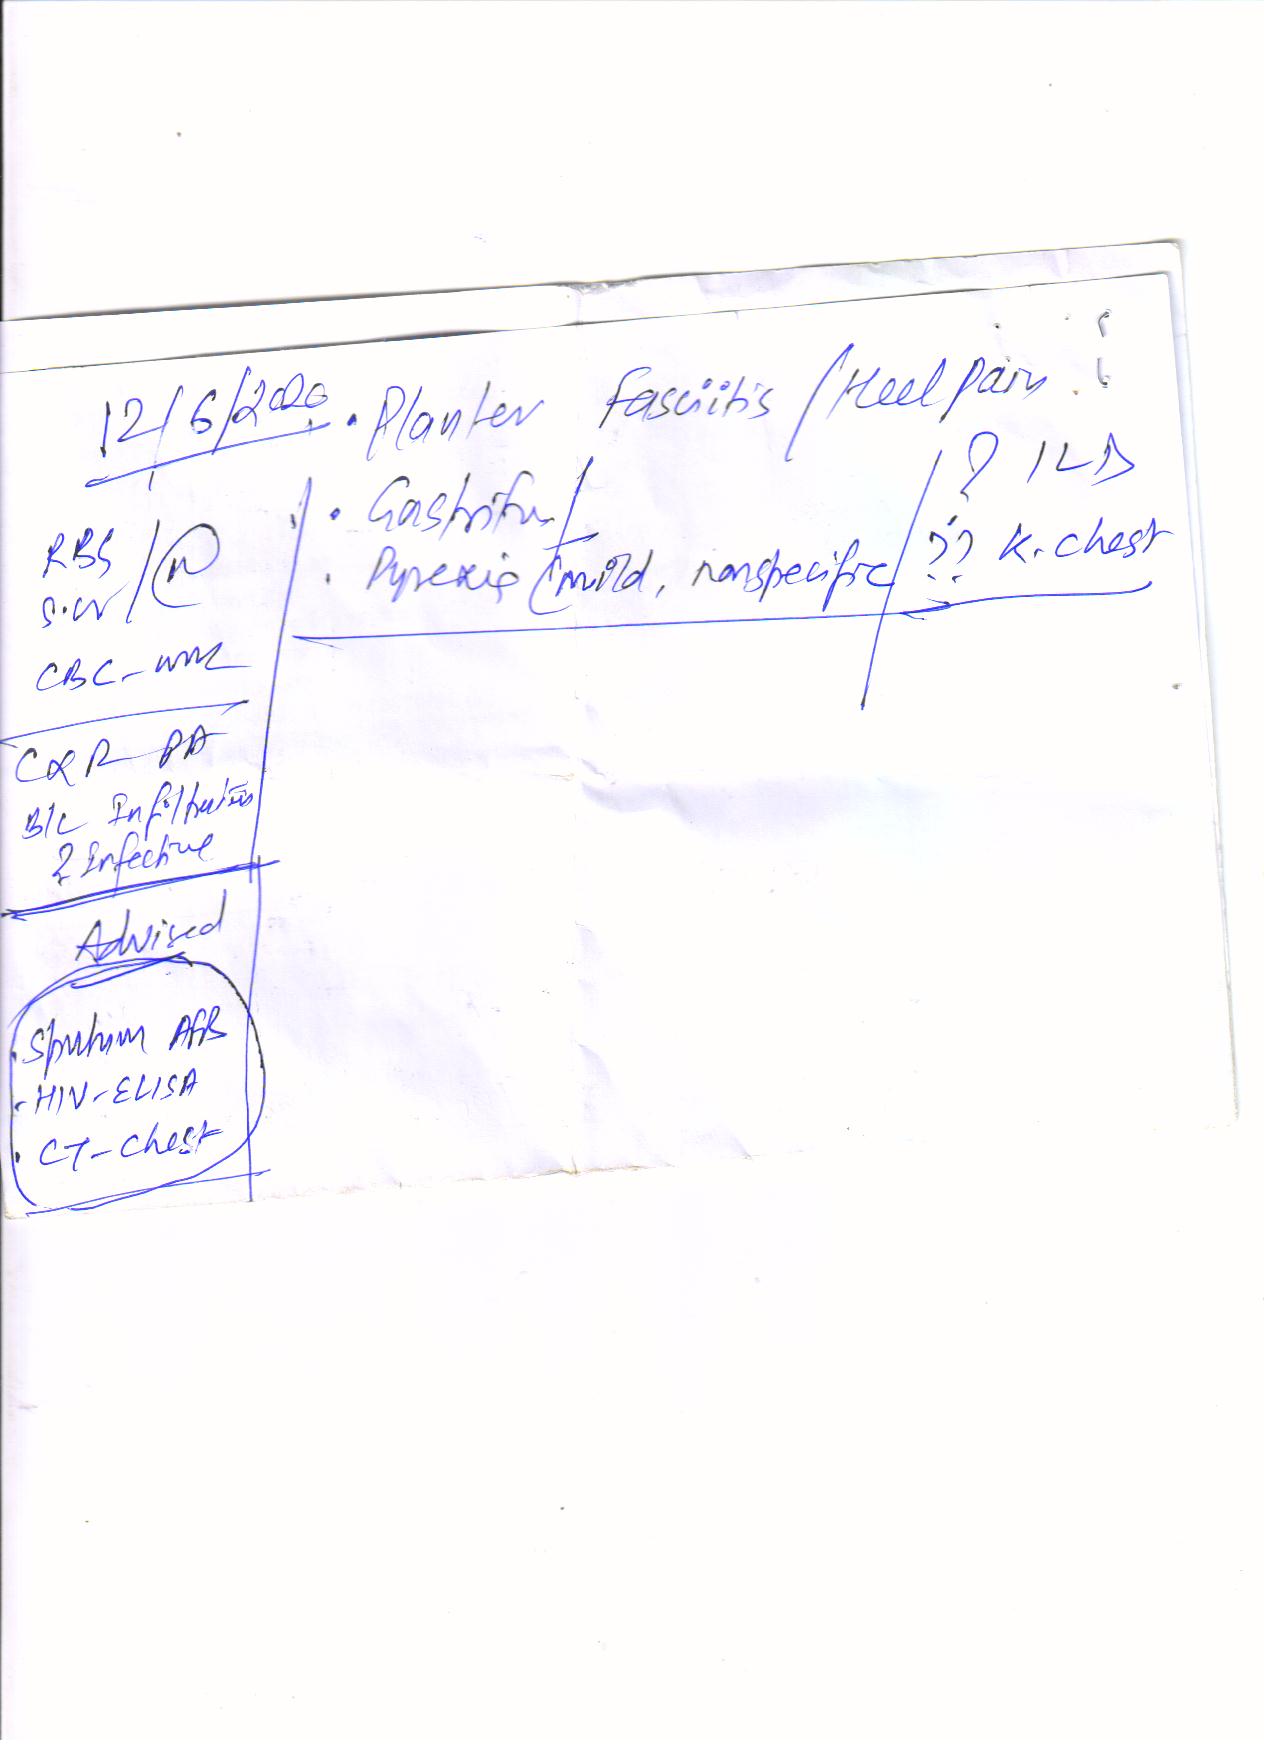 12/6/2020 . Planter fasciitis / Heel pain
. Gastritis
. Pyrexia (mild, nonspecific
? ILD
?? K. chest
RBS
S. cr
(n)
CBC - WNL
CXR PA
B/L Infiltrates
? Infective
Advised
. Sputum AFB
. HIV - ELISA
. CT - Chest